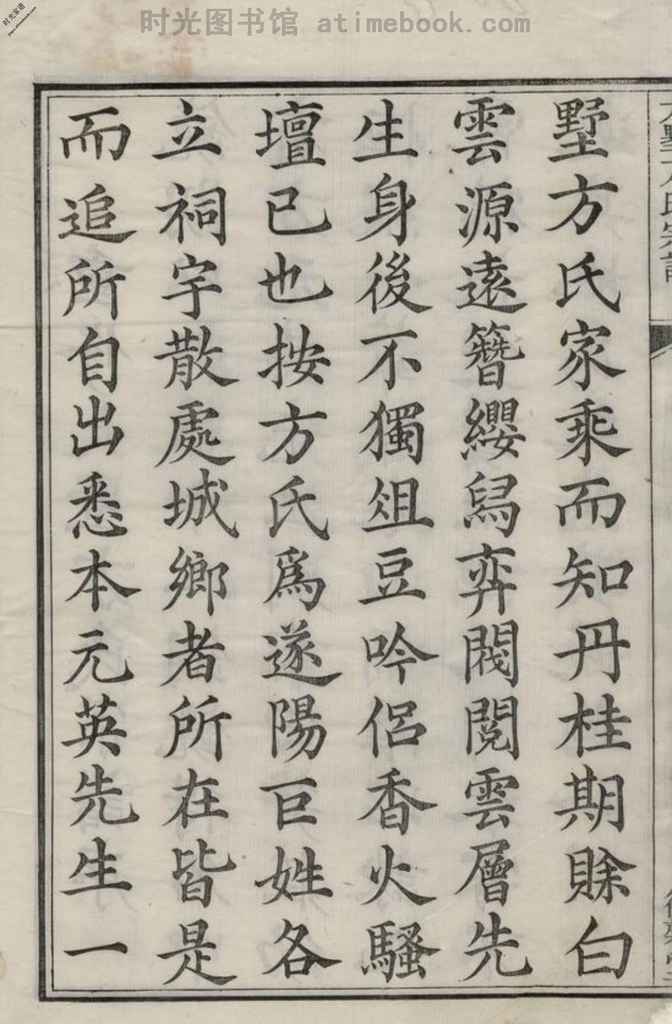 时光图书馆 atimebook.com
墅方氏家乘而知丹桂期賖白
雲源遠簪纓舄弈閥閱雲層先
生身後不獨俎豆吟侶香火騷
壇已也按方氏爲遂陽巨姓各
立祠宇散處城鄉者所在皆是
而追所自出悉本元英先生一